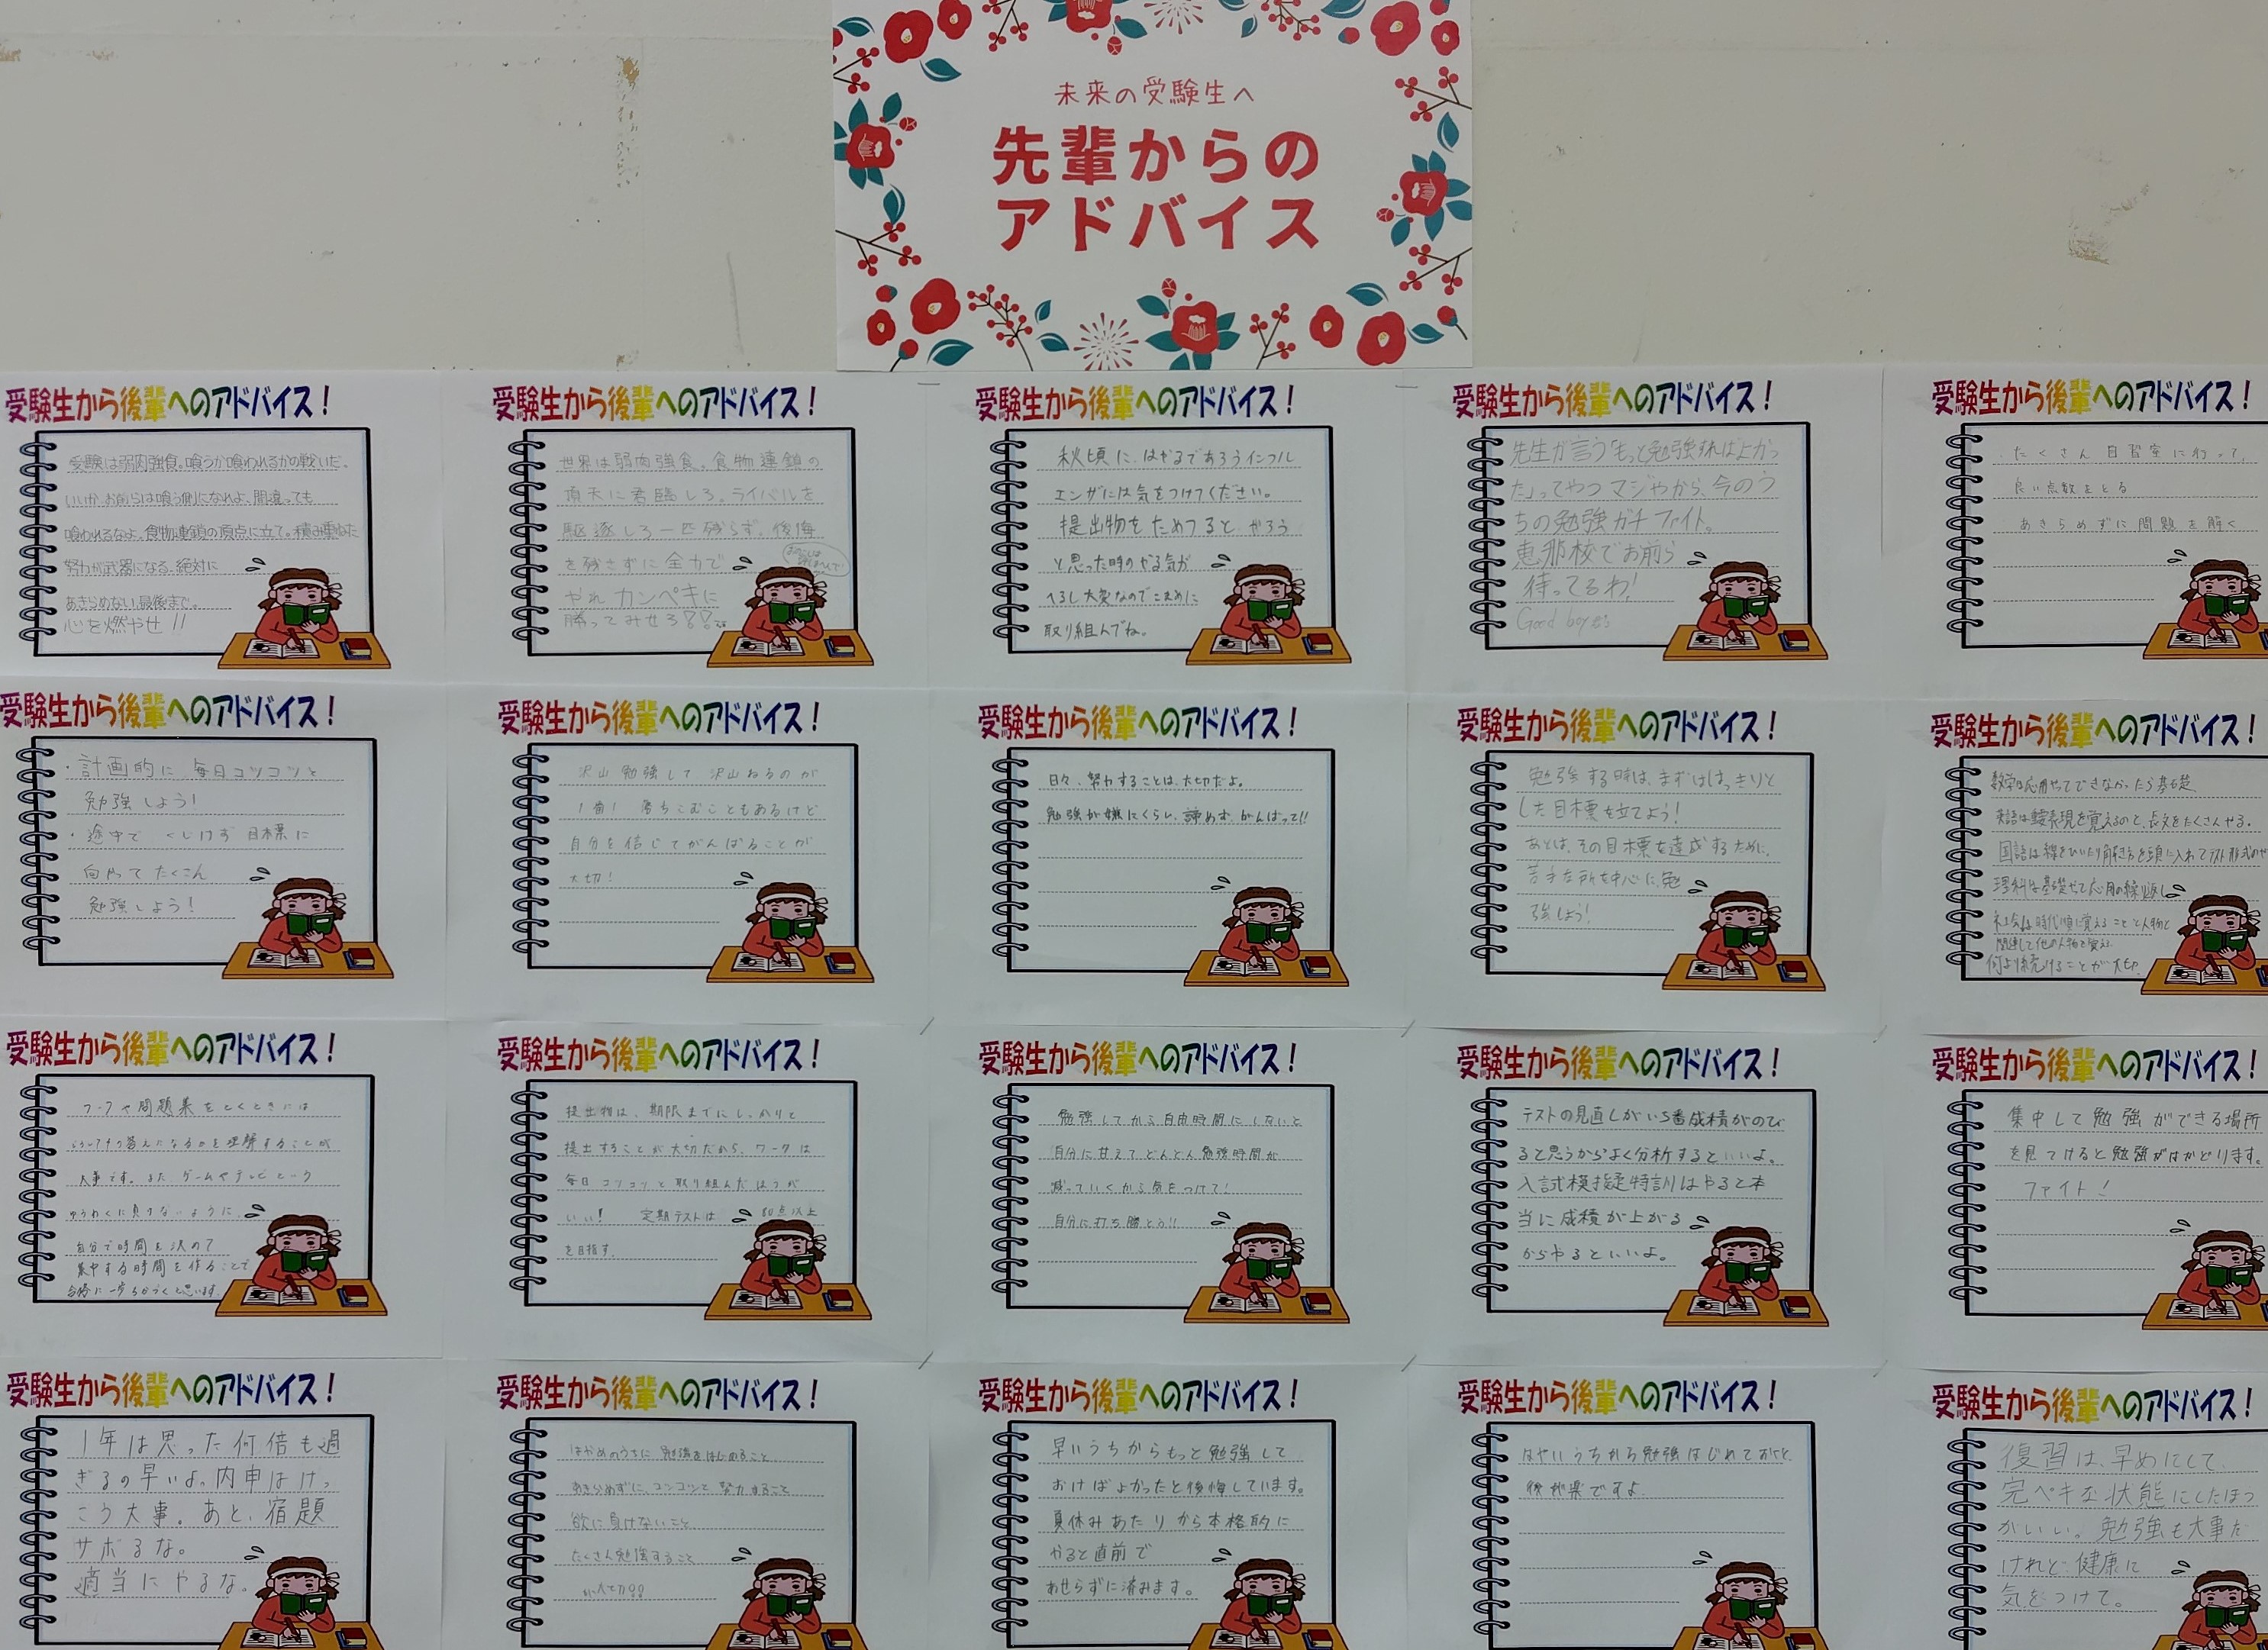 未来の受験生へ
先輩からの
アドバイス
受験生から後輩へのアドバイス!
受験は弱肉強食。喰うか喰われるかの戦いだ。
いいか、お前らは喰う側になれよ、間違っても
喰われるなよ。食物連鎖の頂点に立て。積み重ねた
努力が武器になる。絶対に
あきらめない最後まで。
心を燃やせ!!
受験生から後輩へのアドバイス!
世界は弱肉強食。食物連鎖の
頂天に君臨しろ。ライバルを
駆逐しろ一匹残らず。後悔
を残さずに全力で
やれ カンペキに
勝ってみせろ!!
受験生から後輩へのアドバイス!
秋頃に、はやるであろうインフル
エンザには気をつけてください。
提出物をためすると、やろう
と思った時のやる気が
へるし大変なのでこまめに
取り組んでね。
受験生から後輩へのアドバイス!
先生が言う「もっと勉強すれば上かっ
た」ってやつ マジやから、今のう
ちの勉強ガチファイト。
恵那校でお前ら
待ってるわ!
Good boys
受験生から後輩へのアドバイス!
たくさん自習室に行って、
良い点数をとる
あきらめずに問題を解く
受験生から後輩へのアドバイス!
・計画的に 毎日コツコツと
勉強しよう!
・途中で くじけず 目標に
向かって たくさん
勉強しよう!
受験生から後輩へのアドバイス!
沢山勉強して沢山ねるのが
1番! 落ちこむこともあるけど
自分を信じてがんばることが
大切!
受験生から後輩へのアドバイス!
日々、努力することは、大切だよ。
勉強が嫌にくらい、諦めず、がんばって!!
受験生から後輩へのアドバイス!
勉強する時は、まずははっきりと
した目標を立てよう!
あとは、その目標を達成するために、
苦手な所を中心に、勉
強しよう!
受験生から後輩へのアドバイス!
数学は応用やってできなかったら基礎
英語は重要表現を覚えるのと、長文をたくさんやる。
国語は線をひいたり解き方を頭に入れてテスト形式
理科は基礎ができて応用の繰り返し
社会は時代順に覚えることと人物と
関連して他の人物で覚える
何より続けることが大切
受験生から後輩へのアドバイス!
ワークや問題集をとくときには
どうしてその答えになるかを理解することが
大事です。また、ゲームやテレビといった
ゆうわくに負けないように
自分で時間を決めて
集中する時間を作ることで
合格に一歩ちかづくと思います
受験生から後輩へのアドバイス!
提出物は、期限までにしっかりと
提出することが大切だから、ワークは
毎日コツコツと取り組んだほうが
いい! 定期テストは 80点以上
を目指す。
受験生から後輩へのアドバイス!
勉強してから自由時間にしないと
自分に甘えてどんどん勉強時間が
減っていくから気をつけて!
自分に打ち勝とう!!
受験生から後輩へのアドバイス!
テストの見直しがいち番成積がのび
ると思うからよく分析するといいよ。
入試模擬特訓はやると本
当に成積が上がる
からやるといいよ。
受験生から後輩へのアドバイス!
集中して勉強ができる場所
を見つけると勉強がはかどります。
ファイト!
受験生から後輩へのアドバイス!
1年は思った何倍も過
ぎるの早いよ。内申はけっ
こう大事。あと、宿題
サボるな。
適当にやるな。
受験生から後輩へのアドバイス!
はやめのうちに、勉強をはじめること
あきらめずに、コツコツと努力すること
欲に負けないこと
たくさん勉強すること
受験生から後輩へのアドバイス!
早いうちからもっと勉強して
おけばよかったと後悔しています。
夏休みあたりから本格的に
やると直前で
あせらずに済みます。
受験生から後輩へのアドバイス!
はやいうちから勉強はじめておくと、
後が楽ですよ
受験生から後輩へのアドバイス!
復習は、早めにして、
完ペキな状態にしたほう
がいい。勉強も大事だ
けれど、健康に
気をつけて。